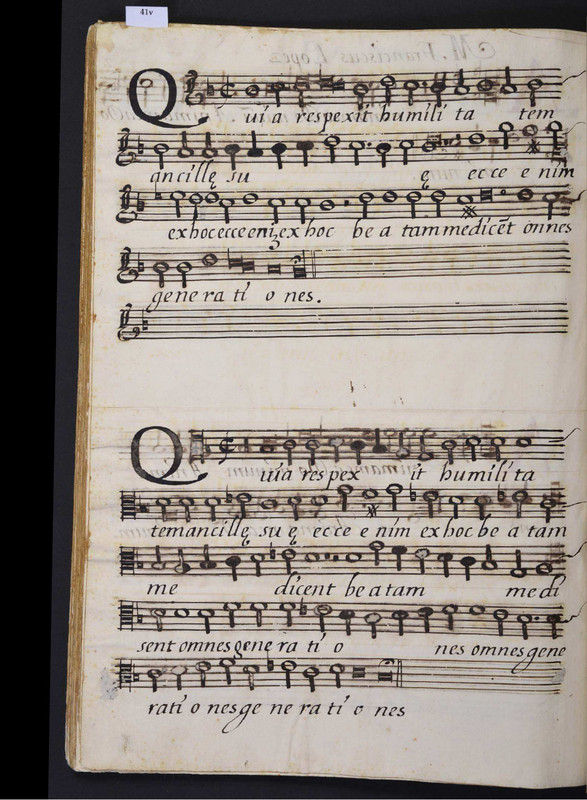 41v
M. Franciscus Lopez
Quia respexit humili ta tem
ancillę su ę ecce e nim
ex hoc ecce eni, ex hoc be a tam me dicēt onnes
gene ra ti o nes.
Quia respex it humili ta
tem ancillę su ę ecce e nim ex hoc be a tam
me dicent be a tam me di
sent omnes gene ra ti o nes omnes gene
rati o nes ge ne ra ti o nes